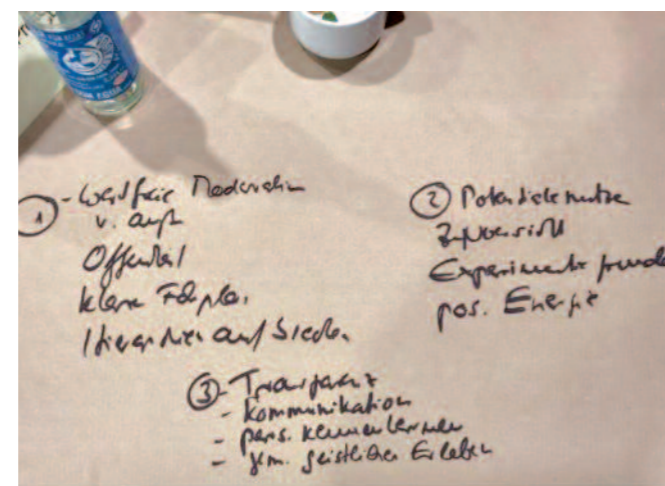 ① - Wertfreie Moderation
v. außen
Offenheit
klare
Hierarchien auf
② Potentiale nutzen
Zuversicht
Experimentierfreude
pos. Energie
③ - Transparenz
- Kommunikation
- pers. kennenlernen
- gem. geistliches Erleben